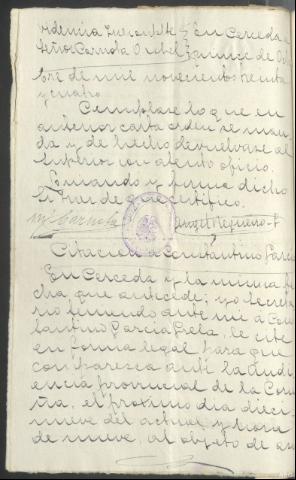 videncia Juez En Cerceda a
Señor Carnota quince de Octu
bre de mil novecientos treinta
y cuatro.
Cumplase lo que en
anterior carta orden se man
da y de hecho devuelvase al
Superior con atento oficio.
Lo mandó y firma dicho
Sr. Juez de que certifico.
Citacion a Constantino Garcia
En Cerceda y la misma fe
cha que antecede; yo Secreta
rio teniendo ante mi a Cons
tantino Garcia, le cite
en forma legal para que
comparezca ante la Audi
encia provincial de la Coru
ña, el proximo dia dieci
nueve del actual y hora
de nueve, al objeto de